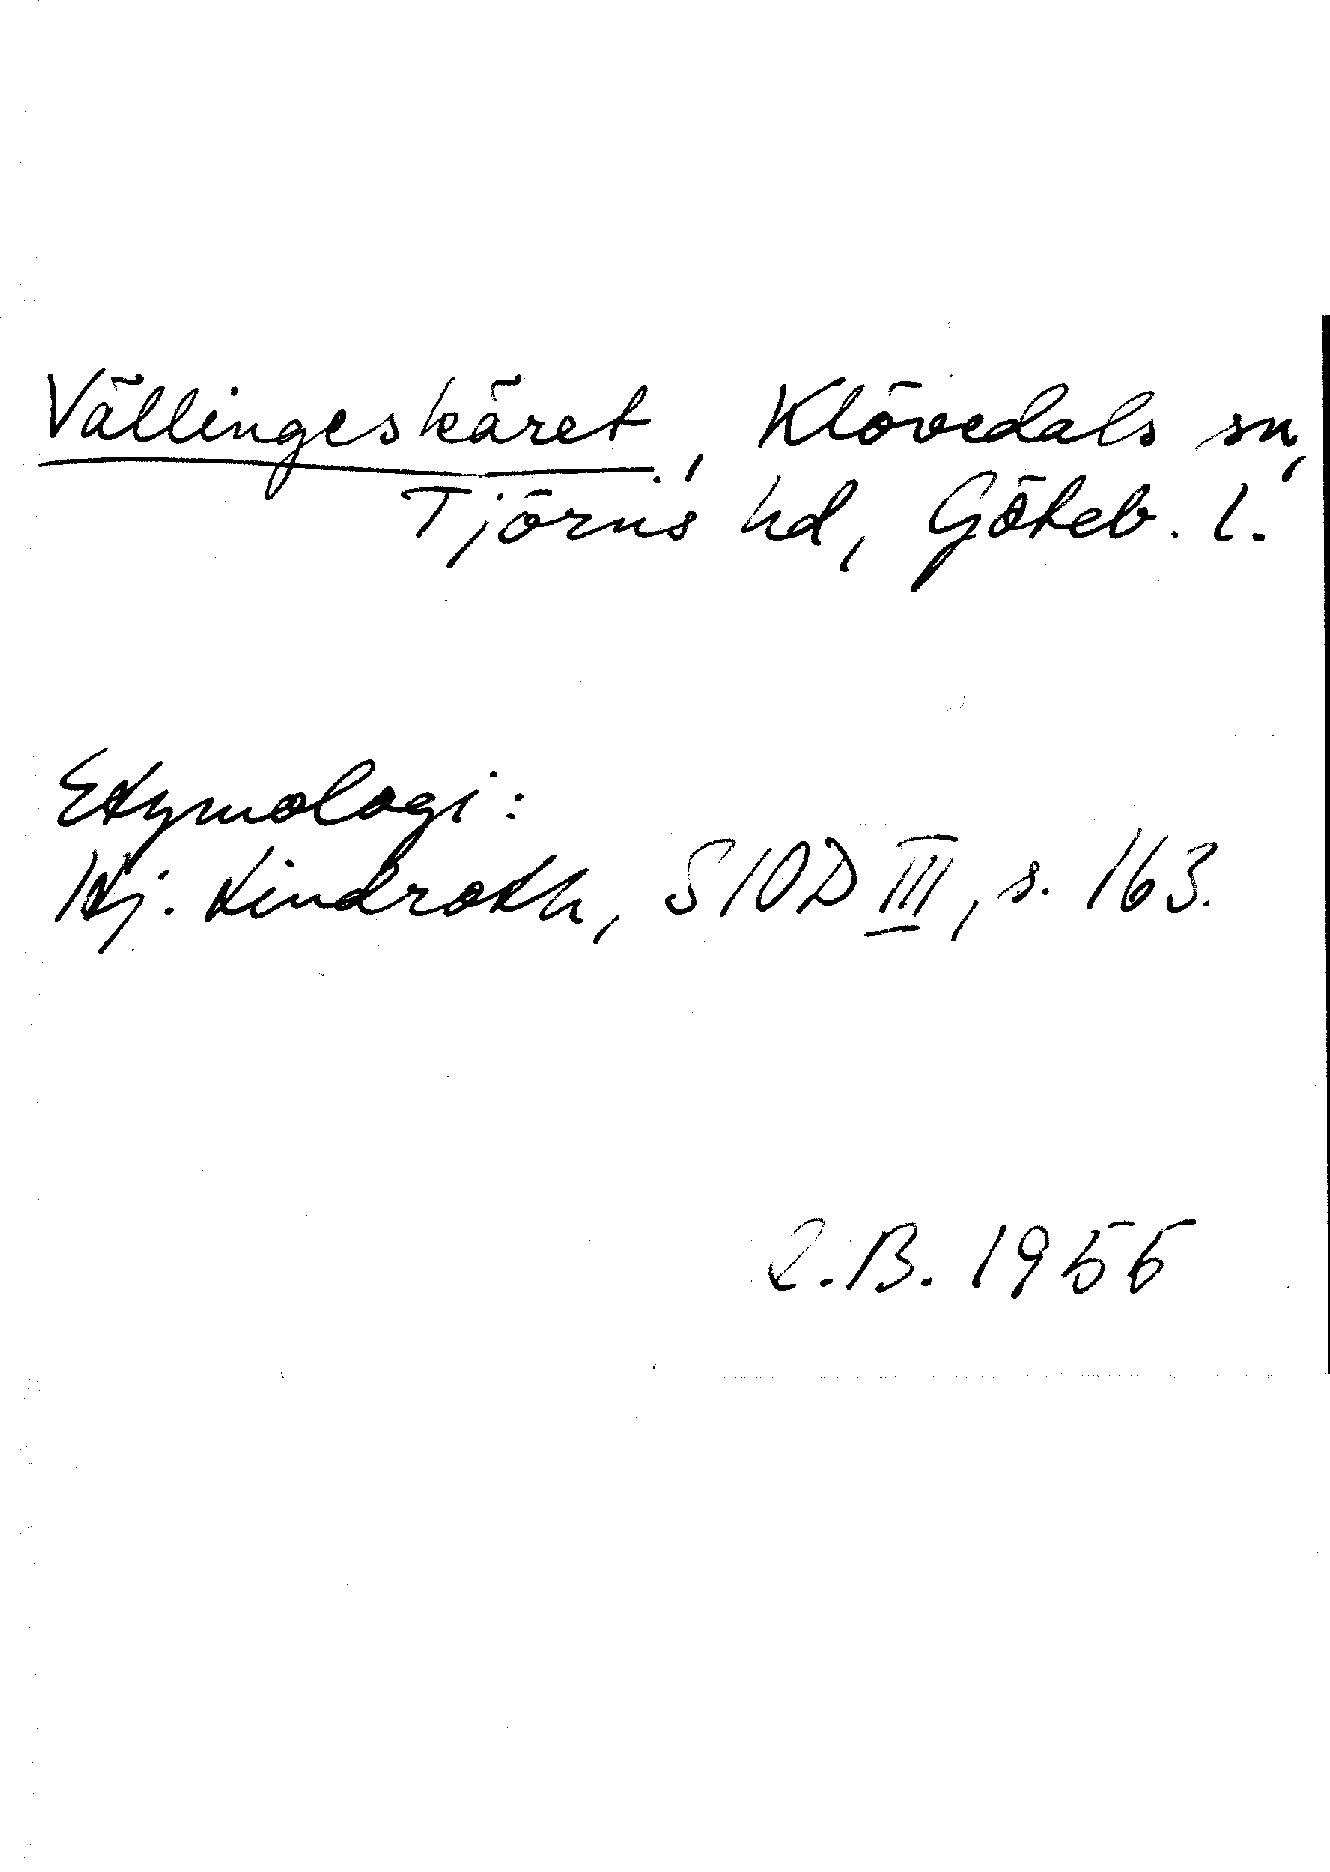 Vällingeskäret, Klövedals sn,
Tjörns hd, Göteb. l.
Etymologi:
Hj. Lindroth, SIOD III, s. 163.
R.B. 1955